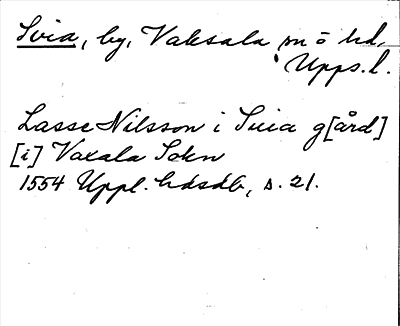 Svia, by, Vaksala sn o hd,
Upps.l.
Lasse Nilsson i Suia g[ård]
[i] Vaxala Sokn
1554 Uppl. hdsdb, s. 21.